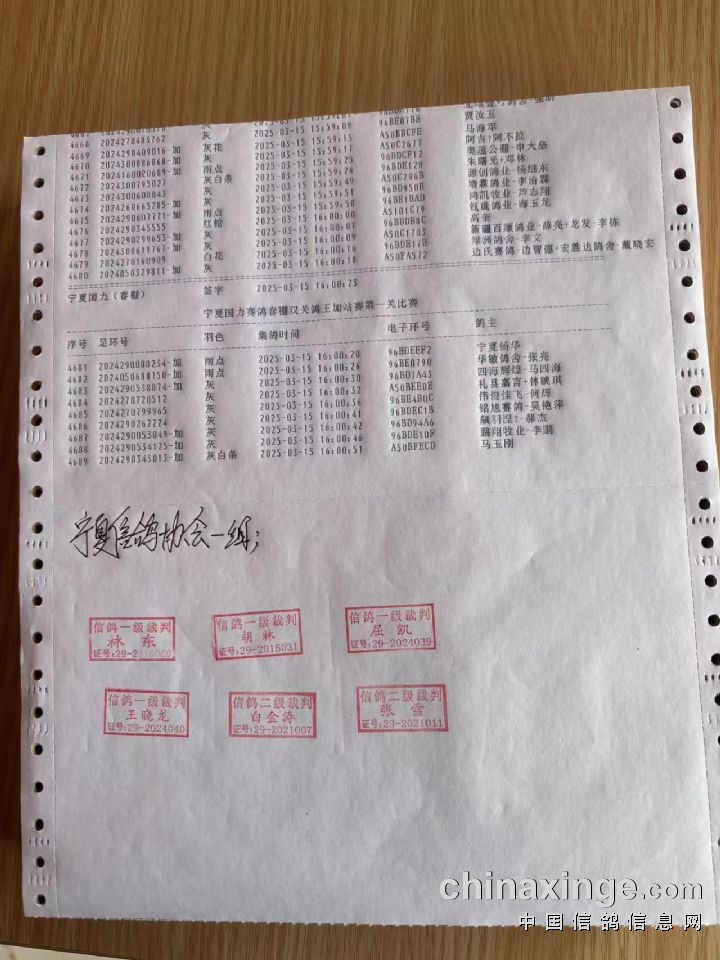 4668 2024270483762 灰 2025-03-15 15:59:09 96BE07B8 贾汝玉
4669 2024290409016-加 灰花 2025-03-15 15:59:17 A50BDCFE 马海军
4670 2024300886868-加 雨点 2025-03-15 15:59:25 A50C2677 阿吉?阿不拉
4671 2024160020689-加 灰白条 2025-03-15 15:59:26 96BDCF12
4672 2024300795027 灰 96BE1128 朱曙光+邓林
4673 2024300600843 灰 15:59:51 96BD950B
4674 2024260165285-加 雨点 96BE1BAD
4675 2024290607771-加 红轮 2025-03-15 16:00:00 A5101C79 钰珑鸽业-海玉龙
4676 2024290345555 灰 2025-03-15 16:00:07 96BDDE8C 高奎
4677 2024290299653-加 灰 2025-03-15 16:00:09 A50C1703 新疆百顺鸽业-薛亮+龙发 李栋
4678 2024380611767-加 白花 2025-03-15 16:00:14 96BDE17B 绿洲鸽舍-李文
4679 2024270160909 灰 2025-03-15 16:00:18 A50FA572 边氏赛鸽-边智德+宏胜达鸽舍-戴晓宏
4680 2024050329811-加 2025-03-15 16:00:23
宁夏国力(春棚) 签字
宁夏国力赛鸽春棚双关鸽王加站赛第一关比赛
序号 足环号 羽色 集鸽时间 电子环号 鸽主
4681 2024290080234-加 雨点 2025-03-15 16:00:20 96BDEEF2 宁夏杨华
4682 2024050680150-加 雨点 2025-03-15 16:00:26 96BE0790 华敏鸽舍-张亮
4683 2024290338074-加 灰 2025-03-15 16:00:30 96BD7A43 四海辉煌-马四海
4684 2024270720512 灰 2025-03-15 16:00:32 A50BEE0E 礼县嘉言+林映琪
4685 2024270799965 灰 2025-03-15 16:00:36 96BE4B0C 伟俊佳飞-何辉
4686 2024290262274 灰 2025-03-15 16:00:41 96BDEC1B 铭旭赛鸽-吴艳萍
4687 2024290053049-加 灰 2025-03-15 16:00:42 96BD94A6
4688 2024290534125-加 灰 2025-03-15 16:00:46 96BDE10F 鹏翔牧业-李鹏
4689 2024290343013-加 灰白条 2025-03-15 16:00:51 A50BFECD 马玉刚
宁夏信鸽协会一组;
信鸽一级裁判
林 东
证号:29-2018030
信鸽一级裁判
胡 林
证号:29-2018031
信鸽一级裁判
屈 凯
证号:29-2024039
信鸽一级裁判
王晓龙
证号:29-2024040
信鸽二级裁判
白金涛
证号:29-2021007
信鸽二级裁判
张 雪
证号:29-2021011
chinaxinge.com
中国信鸽信息网